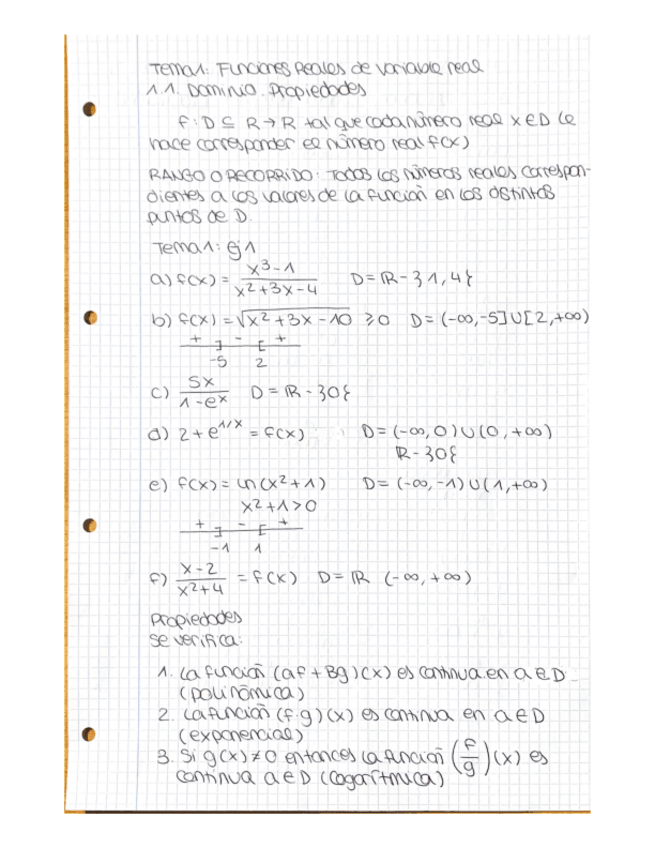 Tema 1: Funciones Reales de variable real
1.1. Dominio. Propiedades
f: D ⊆ R → R tal que cada número real x ∈ D le
hace corresponder el número real f(x)
RANGO O RECORRIDO: Todos los números reales correspon-
dientes a los valores de la función en los distintos
puntos de D.
Tema 1: Ej 1
a) f(x) = (x³-1)/(x²+3x-4) D = ℝ - {1, 4}
b) f(x) = √(x²+3x-10) ≥ 0 D = (-∞, -5] ∪ [2, +∞)
+ ] - [ +
-5 2
c) 5x/(1-eˣ) D = ℝ - {0}
d) 2 + e^(1/x) = f(x) D = (-∞, 0) ∪ (0, +∞)
ℝ - {0}
e) f(x) = ln(x²+1) D = (-∞, -1) ∪ (1, +∞)
x²+1 > 0
+ ] - [ +
-1 1
f) (x-2)/(x²+4) = f(x) D = ℝ (-∞, +∞)
Propiedades
Se verifica:
1. La función (af + Bg)(x) es continua en a ∈ D
(polinómica)
2. La función (f·g)(x) es continua en a ∈ D
(exponencial)
3. Si g(x) ≠ 0 entonces la función (f/g)(x) es
continua a ∈ D (logarítmica)